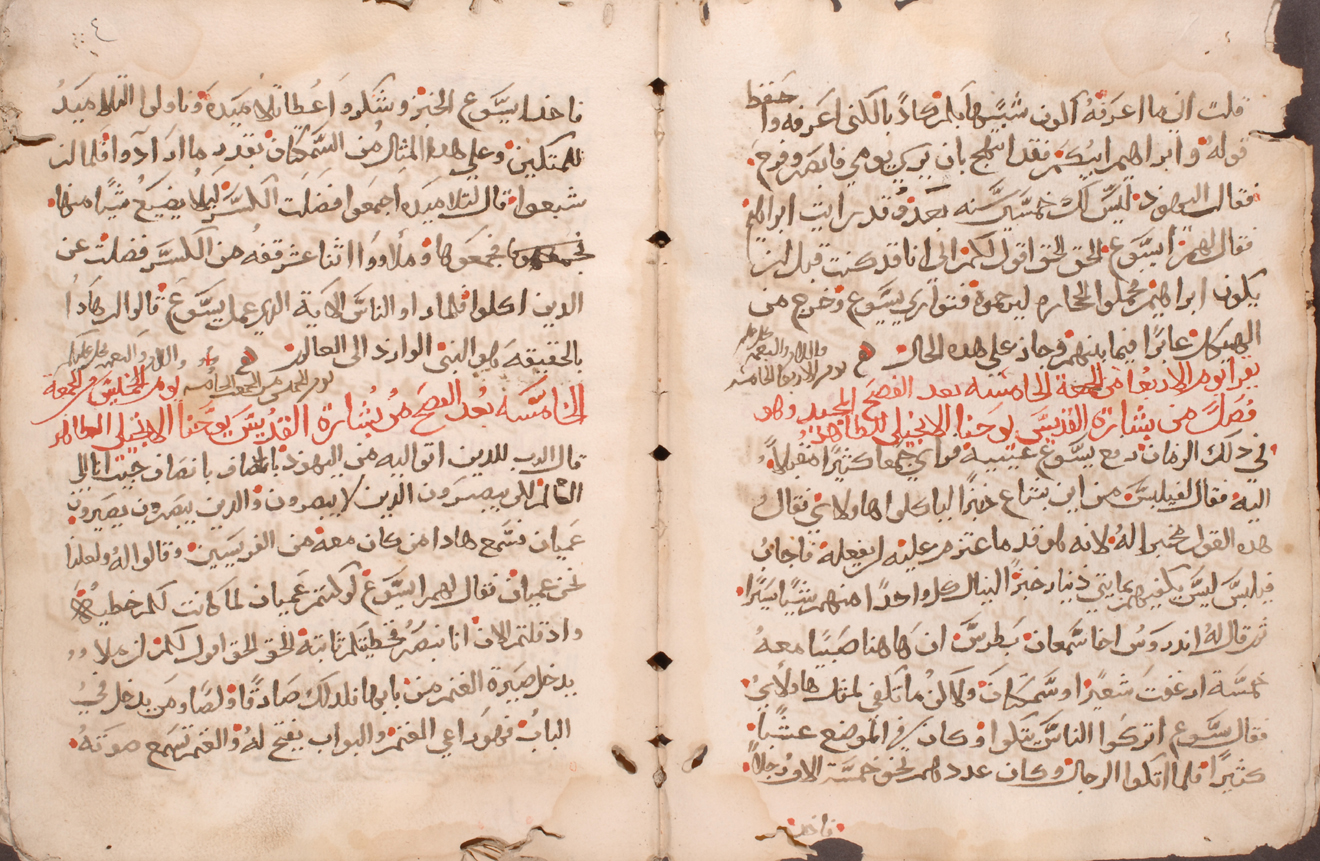 قلت اني ما اعرفه اكون شبيها بكم كاذبا لكني اعرفه واحفظ
قوله وابراهيم ابيكم فقد ابتهج بان يري يومي فابصر وفرح
فقال اليهود ليس لك خمسين سنه بعد وقد رايت ابراهيم
فقال لهم ايسوع الحق الحق اقول لكم اني انا قد كنت قبل ان
يكون ابراهيم فحملوا الحجاره ليرجموه فتواري يسوع وخرج من
الهيكل عابرا فيما بينهم وجاز علي هذه الحال
يقرا يوم الاربعا من الجمعة الخامسه بعد الفصح المجيد وهو
فصل من بشارة القديس يوحنا الانجيلي الطاهر
في ذلك الزمان رفع يسوع عينيه فراي جمعا كثيرا مقبلا
اليه فقال لفيلبس من اين نبتاع خبزا لياكلوا هاولاي فقال
هذه القول مختبرا له لانه هو قد ما عتزم عليه ليفعله فاجابه
فيلبس ليس يكفيهم بمايتي دينار خبزا لينال كل واحدا منهم شيئا يسيرا
ثم قال له اندروس اخا سمعان بطرس ان هاهنا صبيا معه
خمسة ارغفت شعيرا وسمكات ولاكن ما تلفي لمثل هاولاي
فقال يسوع اتركوا الناس يتكوا وكان في الموضع عشبا
كثيرا فلما اتكوا الرجال وكان عددهم نحو خمسة الاف رجلا
فاخذ
٤
فاخذ ايسوع الخبز وشكر واعطا تلاميده وناولوا التلاميد
للمتكين وعلي هذا المثال من السمكات بقدر ما ارادوا فلما ان
شبعوا قال لتلاميده اجمعوا فضلت الكسر ليلا يضيع شيا منها
فجمعوها وملاووا اثنا عشر قفه من الكسر فضلت عن
الدين اكلوا فلما راو الناس الاية الدي عمل يسوع قالوا ان هادا
بالحقيقه هو النبي الوارد الي العالم
يوم الخميس من الجمعة
الخامسه بعد الفصح من بشارة القديس يوحنا الانجيلي الطاهر
قال الرب للدين اتوا اليه من اليهود بانصاف جيت انا الي
العالم لكي يبصرون الدين لا يبصرون والدين يبصرون يصيرون
عميان فسمع هادا من كان معه من الفريسين وقالوا له ولعلنا
نحن عميان فقال لهم ايسوع لو كنتم عميان لما كانت لكم خطيه
واد قلتم الان اننا نبصر فخطيتكم ثابته الحق الحق اقول لكم ان من لا
يدخل صيرة الغنم من بابها فلدلك صادقا ولصا ومن يدخل في
الباب فهو راعي الغنم والبواب يفتح له والغنم تسمع صوته